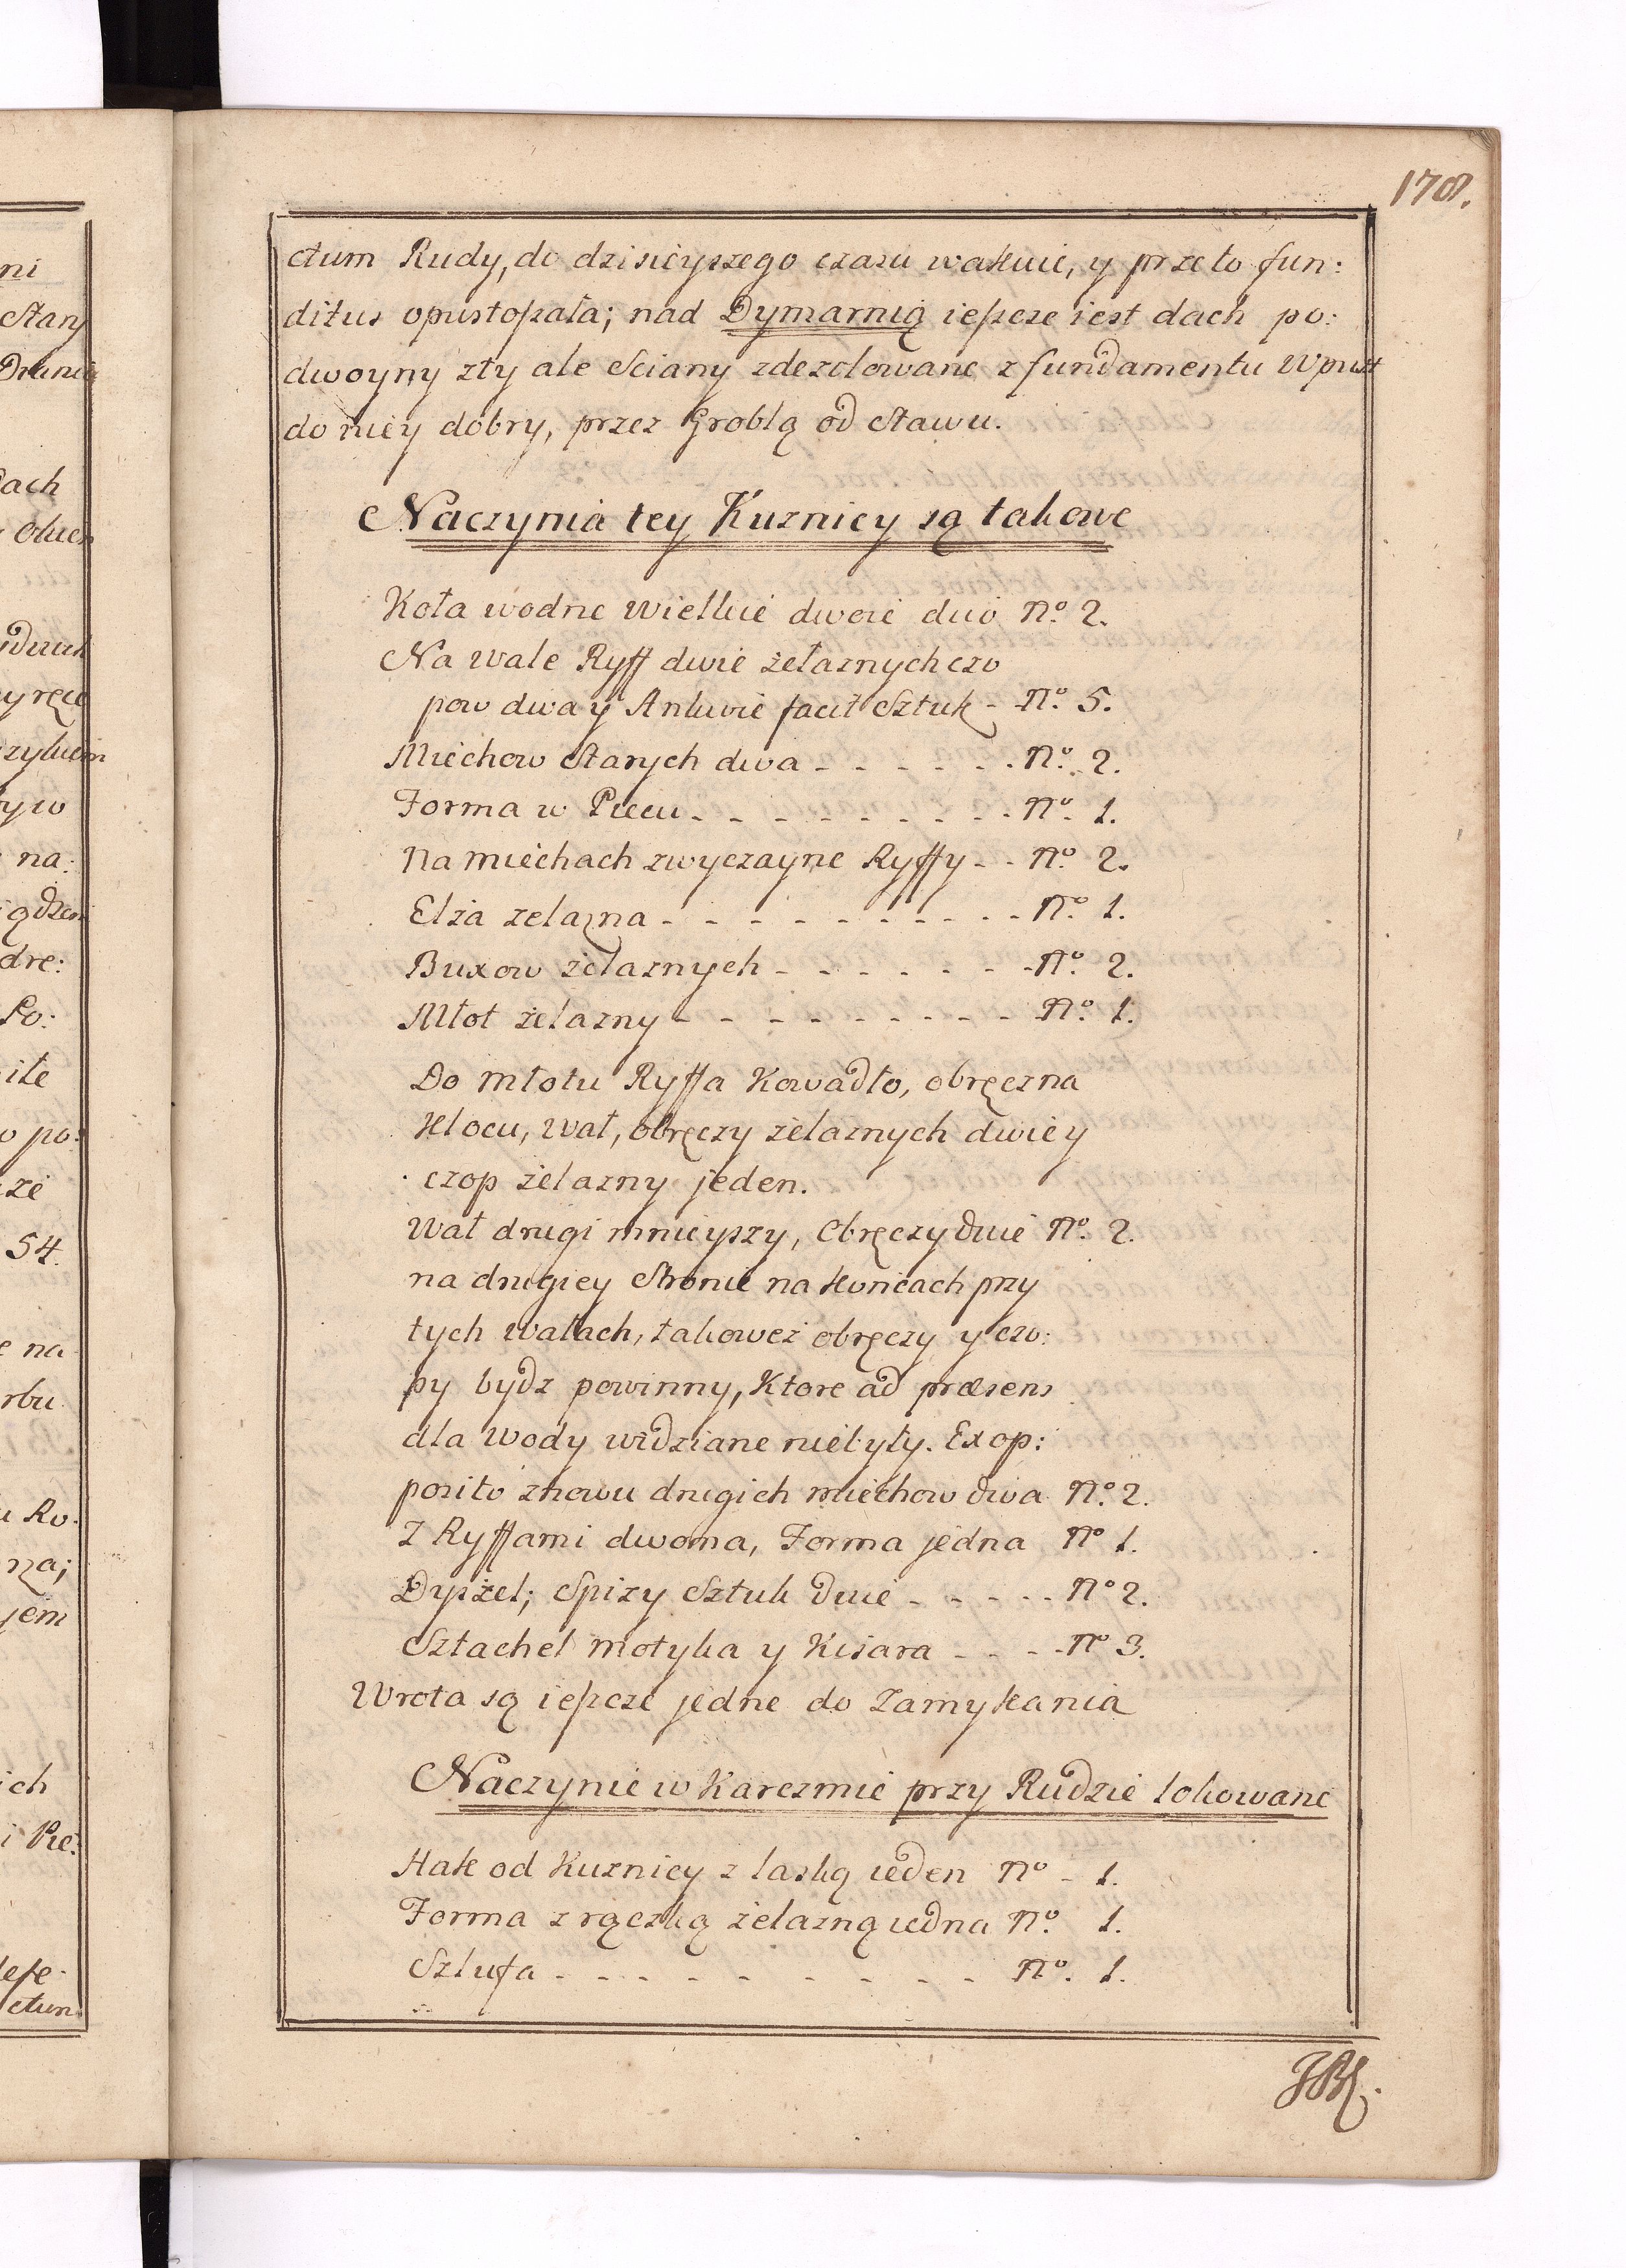 178.
ctum Rudy, do dzisieyszego czasu wakuie, y przeto fun:
ditus opustoszała; nad Dymarnią ieszcze iest dach po:
dwoyny zły ale Sciany zdezolowane z fundamentu Wpust
do niey dobry, przez Groblą od Stawu.
Naczynia tey Kuznicy są takowe
Koła wodne wielkie dwoie duo Nº. 2.
Na wale Ryff dwie żelaznych czo
pow dwa y Ankwie facit Sztuk - Nº. 5.
Miechow Starych dwa - - - - - - Nº. 2.
Forma w Piecu - - - - - - - - Nº. 1.
Na miechach zwyczayne Ryffy - - Nº. 2.
Elza zelazna - - - - - - - - - Nº. 1.
Buxow żelaznych - - - - - - - Nº. 2.
Młot żelazny - - - - - - - - - Nº. 1.
Do młotu Ryffa Kowadło, obręcz na
Klocu, Wał, obręczy żelaznych dwie y
czop żelazny jeden.
Wał drugi mnieyszy, Obręczy dwie Nº. 2.
na drugiey Stronie na końcach przy
tych wałach, takoweż obręczy y czo:
py bydz powinny, Ktore ad præsens
dla Wody widziane niebyły. Ex op:
posito znowu drugich miechow dwa Nº. 2.
Z Ryffami dwoma, Forma jedna Nº 1.
Dyszel; Spizy Sztuk dwie - - - - - Nº 2.
Sztachel motyka y Kisara - - - - Nº 3.
Wrota są ieszcze jedne do Zamykania
Naczynie w Karczmie przy Rudzie lokowane
Hak od Kuznicy z laską ieden Nº - 1.
Forma z rączką żelazną iedna Nº. 1.
Szlufa - - - - - - - - - - Nº. 1.